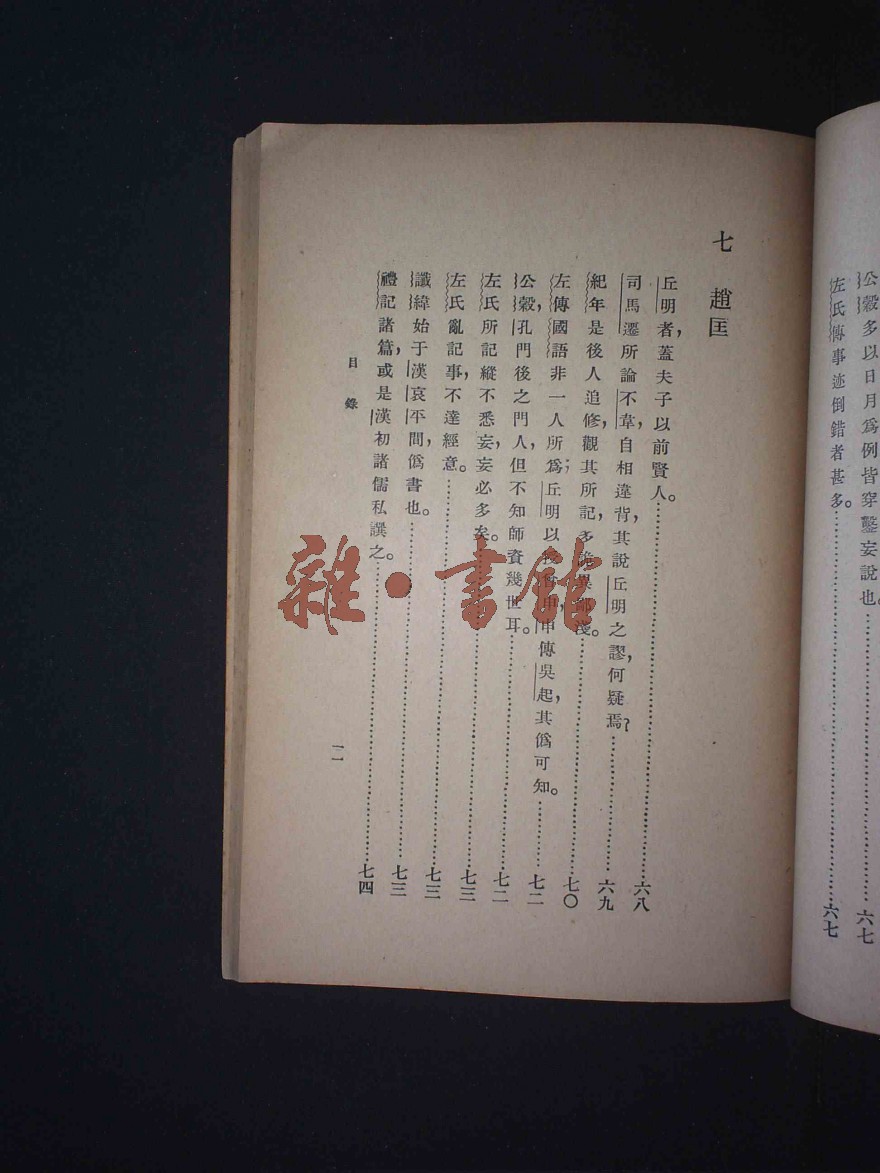 公穀多以日月爲例皆穿鑿妄說也。……六七
左氏傳事迹倒錯者甚多。……六七
七 趙匡
丘明者，蓋夫子以前賢人。……六八
司馬遷所論不韋，自相違背，其說丘明之謬，何疑焉？……六九
紀年是後人追修，觀其所記，多詭異鄙淺。……七〇
左傳國語非一人所爲；丘明以授曾申，申傳吳起，其僞可知。……七二
公穀，孔門後之門人，但不知師資幾世耳。……七二
左氏所記縱不悉妄，妄必多矣。……七三
左氏亂記事，不達經意。……七三
讖緯始于漢哀平間，僞書也。……七三
禮記諸篇，或是漢初諸儒私譔之。……七四
目錄
一一
雜·書館